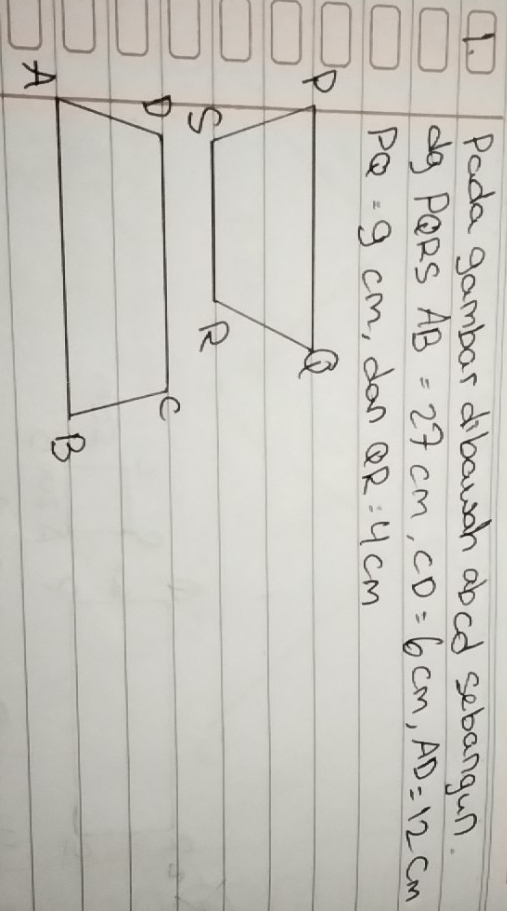 1. Pada gambar dibawah abcd sebangun.
dg PQRS AB = 27 cm, CD = 6 cm, AD = 12 cm
PQ = 9 cm, dan QR = 4 cm
P Q
S R
D C
A B